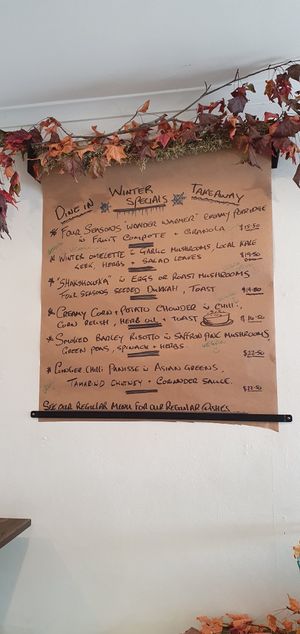 DINE IN WINTER SPECIALS TAKEAWAY
* "FOUR SEASONS WONDER WARMER" CREAMY PORRIDGE
FRUIT COMPOTE + GRANOLA
* WINTER OMELETTE GARLIC MUSHROOMS, LOCAL KALE
LEEK, HERBS + SALAD LEAVES $19.50
* "SHAKSHOUKA" EGGS OR ROAST MUSHROOMS
FOUR SEASONS SEEDED DUKKAH, TOAST $19.50
* CREAMY CORN + POTATO CHOWDER CHILI,
CORN RELISH, HERB OIL + TOAST
* SMOKED BARLEY RISOTTO SAFFRON PINK MUSHROOMS,
GREEN PEAS, SPINACH + HERBS. $22.50
* GINGER CHILI PANISSE ASIAN GREENS,
TAMARIND CHUTNEY + CORIANDER SAUCE. $22.50
SEE OUR REGULAR MENU FOR OUR REGULAR DISHES